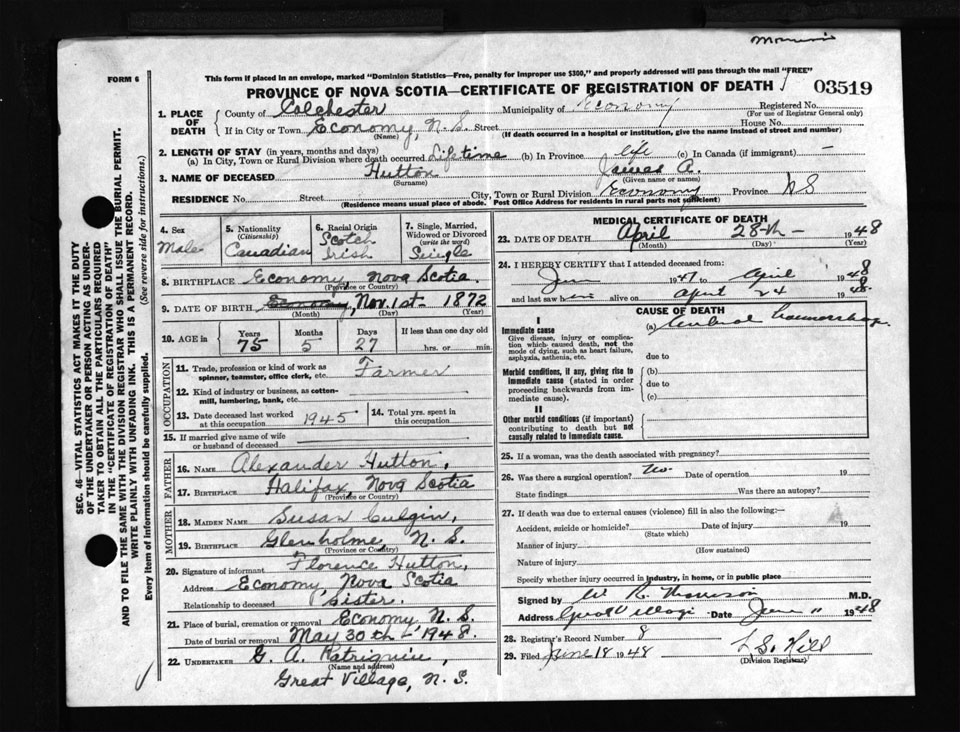 FORM 6
This form if placed in an envelope, marked "Dominion Statistics—Free, penalty for improper use $300," and properly addressed will pass through the mail "FREE"
PROVINCE OF NOVA SCOTIA—CERTIFICATE OF REGISTRATION OF DEATH
03519
1. PLACE OF DEATH
County of Colchester Municipality of Economy Registered No.
(For use of Registrar General only)
If in City or Town Economy, N.S. Street House No.
(Name) (If death occurred in a hospital or institution, give the name instead of street and number)
2. LENGTH OF STAY (in years, months and days)
(a) In City, Town or Rural Division where death occurred Lifetime (b) In Province life (c) In Canada (if immigrant) —
3. NAME OF DECEASED Hutton James A.
(Surname) (Given name or names)
RESIDENCE No. Street City, Town or Rural Division Economy Province NS
(Residence means usual place of abode. Post Office Address for residents in rural parts not sufficient)
4. Sex
Male
5. Nationality
(Citizenship)
Canadian
6. Racial Origin
Scotch
Irish
7. Single, Married,
Widowed or Divorced
(write the word)
Single
8. BIRTHPLACE Economy, Nova Scotia
(Province or Country)
9. DATE OF BIRTH Economy, Nov. 1st 1872
(Month) (Day) (Year)
10. AGE in
Years
75
Months
5
Days
27
If less than one day old
hrs. or min.
OCCUPATION
11. Trade, profession or kind of work as
spinner, teamster, office clerk, etc. Farmer
12. Kind of industry or business, as cotten-
mill, lumbering, bank, etc.
13. Date deceased last worked
at this occupation 1945
14. Total yrs. spent in
this occupation
15. If married give name of wife
or husband of deceased
FATHER
16. NAME Alexander Hutton,
17. BIRTHPLACE Halifax Nova Scotia
(Province or Country)
MOTHER
18. MAIDEN NAME Susan Culgin,
19. BIRTHPLACE Glenholme, N.S.
(Province or Country)
20. Signature of informant Florence Hutton,
Address Economy, Nova Scotia
Relationship to deceased Sister.
21. Place of burial, cremation or removal Economy N.S.
Date of burial or removal May 30th - 1948.
22. UNDERTAKER G. A.
(Name and address)
Great Village, N.S.
MEDICAL CERTIFICATE OF DEATH
23. DATE OF DEATH April 28th - 1948
(Month) (Day) (Year)
24. I HEREBY CERTIFY that I attended deceased from:
1947 to April 1948
and last saw him alive on April 24 1948
CAUSE OF DEATH
I
Immediate cause
Give disease, injury or complica-
tion which caused death, not the
mode of dying, such as heart failure,
asphyxia, asthenia, etc.
(a) Cerebral
due to
Morbid conditions, if any, giving rise to
immediate cause (stated in order
proceeding backwards from im-
mediate cause).
(b)
due to
(c)
II
Other morbid conditions (if important)
contributing to death but not
causally related to immediate cause.
25. If a woman, was the death associated with pregnancy?
26. Was there a surgical operation? No Date of operation 19
State findings Was there an autopsy?
27. If death was due to external causes (violence) fill in also the following:-
Accident, suicide or homicide? Date of injury 19
(State which)
Manner of injury
(How sustained)
Nature of injury
Specify whether injury occurred in industry, in home, or in public place
Signed by W. R. M.D.
Address Great Village Date June 11 1948
28. Registrar's Record Number 8
29. Filed June 18 1948 L. S. Hill
(Division Registrar)
SEC. 46—VITAL STATISTICS ACT MAKES IT THE DUTY
OF THE UNDERTAKER OR PERSON ACTING AS UNDER-
TAKER TO OBTAIN ALL THE PARTICULARS REQUIRED
IN THE "CERTIFICATE OF REGISTRATION OF DEATH"
AND TO FILE THE SAME WITH THE DIVISION REGISTRAR WHO SHALL ISSUE THE BURIAL PERMIT.
WRITE PLAINLY WITH UNFADING INK. THIS IS A PERMANENT RECORD.
Every item of information should be carefully supplied. (See reverse side for instructions.)